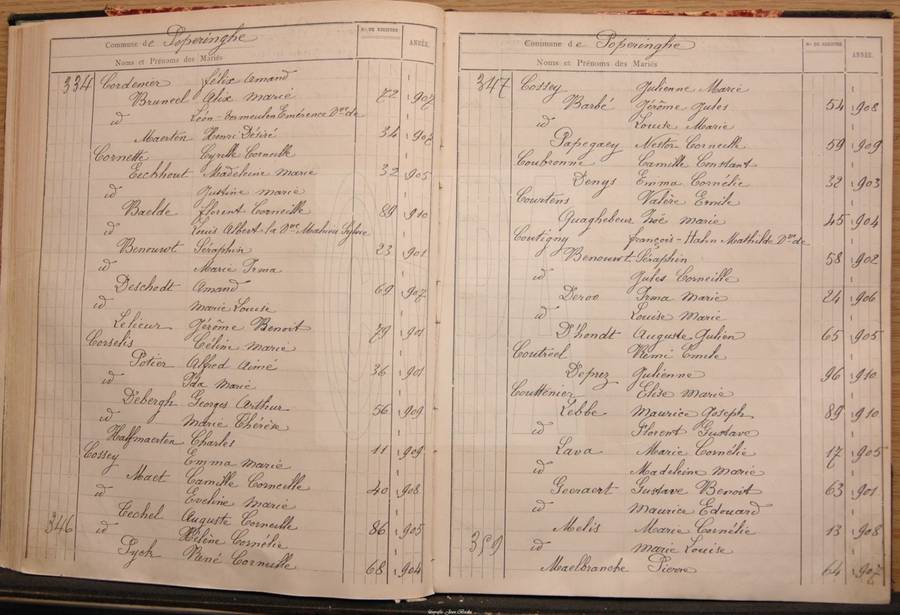 Commune de Poperinghe
Noms et Prénoms des Mariés
Nos DE REGISTRE
ANNÉE
334 Cordemer Félix Amand
Bruneel Alix Marie 72 1907
id Léon - Vermeulen Emérence Dve de
Maerten Henri Désiré 34 1907
Cornette Cyrille Corneille
Eeckhout Madeleine Marie 32 1905
id Justine Marie
Baelde Florent Corneille 89 1910
id Louis Albert Sylvie
Benouwt Séraphin 23 1901
id Marie Irma
Deschodt Amand 69 1907
id Marie Louise
Lelieur Jérôme Benoit 79 1901
Corselis Céline Marie
Potier Alfred Aimé 36 1901
id Ida Marie
Debergh Georges Arthur 56 1909
id Marie Thérèse
Halfmaerten Charles 11 1909
Cossey Emma Marie
Maet Camille Corneille 40 1908
id Eveline Marie
Techel Auguste Corneille 86 1905
346 id Hélène Cornélie
Pyck René Corneille 68 1904
Commune de Poperinghe
Noms et Prénoms des Mariés
Nos DE REGISTRE
ANNÉE
347 Cossey Julienne Marie
Barbé Jérôme Jules 54 1908
id Louise Marie
Papegaey Nestor Corneille 59 1909
Coubronne Camille Constant
Denys Emma Cornélie 32 1903
Courtens Valère Emile
Quaghebeur Zoé Marie 45 1904
Coutigny François - Hahn Mathilde Dve de
Benouwt Séraphin 58 1902
id Jules Corneille
Deroo Irma Marie 24 1906
id Louise Marie
D'hondt Auguste Julien 65 1905
Coutréel Rémi Emile
Deprez Julienne 96 1910
Couttenier Elise Marie
Lebbe Maurice Joseph 89 1910
id Florent Gustave
Lava Marie Cornélie 17 1905
id Madeleine Marie
Geeraert Gustave Benoit 63 1901
id Maurice Edouard
Melis Marie Cornélie 13 1908
359 id Marie Louise
Maelbrancke Pierre 64 1907